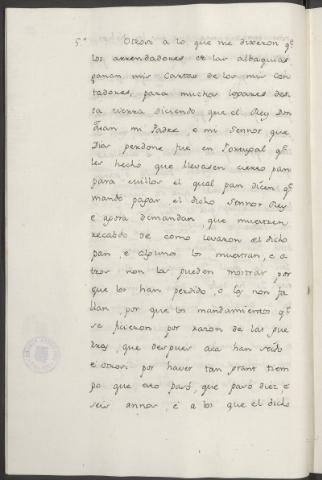 5º Otrosi a lo que me dixeron qe
los arrendadores de las albaquias
ganan mis Cartas de los mis con
tadores, para muchos logares des
ta tierra diciendo que el Rey Don
Juan mi Padre e mi Sennor que
Dios perdone fue en Portugal qe
les hecho que llevasen cierto pan
para cuillos el qual pan dicen qe
mandó pagar el dicho Sennor Rey
e agora demandan, que muestren
recabdo de como levaron el dicho
pan e algunos los muestran, e o
tros non los pueden mostrar por
que los han perdido, o los non fa
llan, por que los mandamientos qe
se ficieron por razon de las gue
rras, que despues aca han seido
e otrosi por haver tan grant tiem
po que esto pasó, que pasó diez e
seis annos, e a los que el dicho